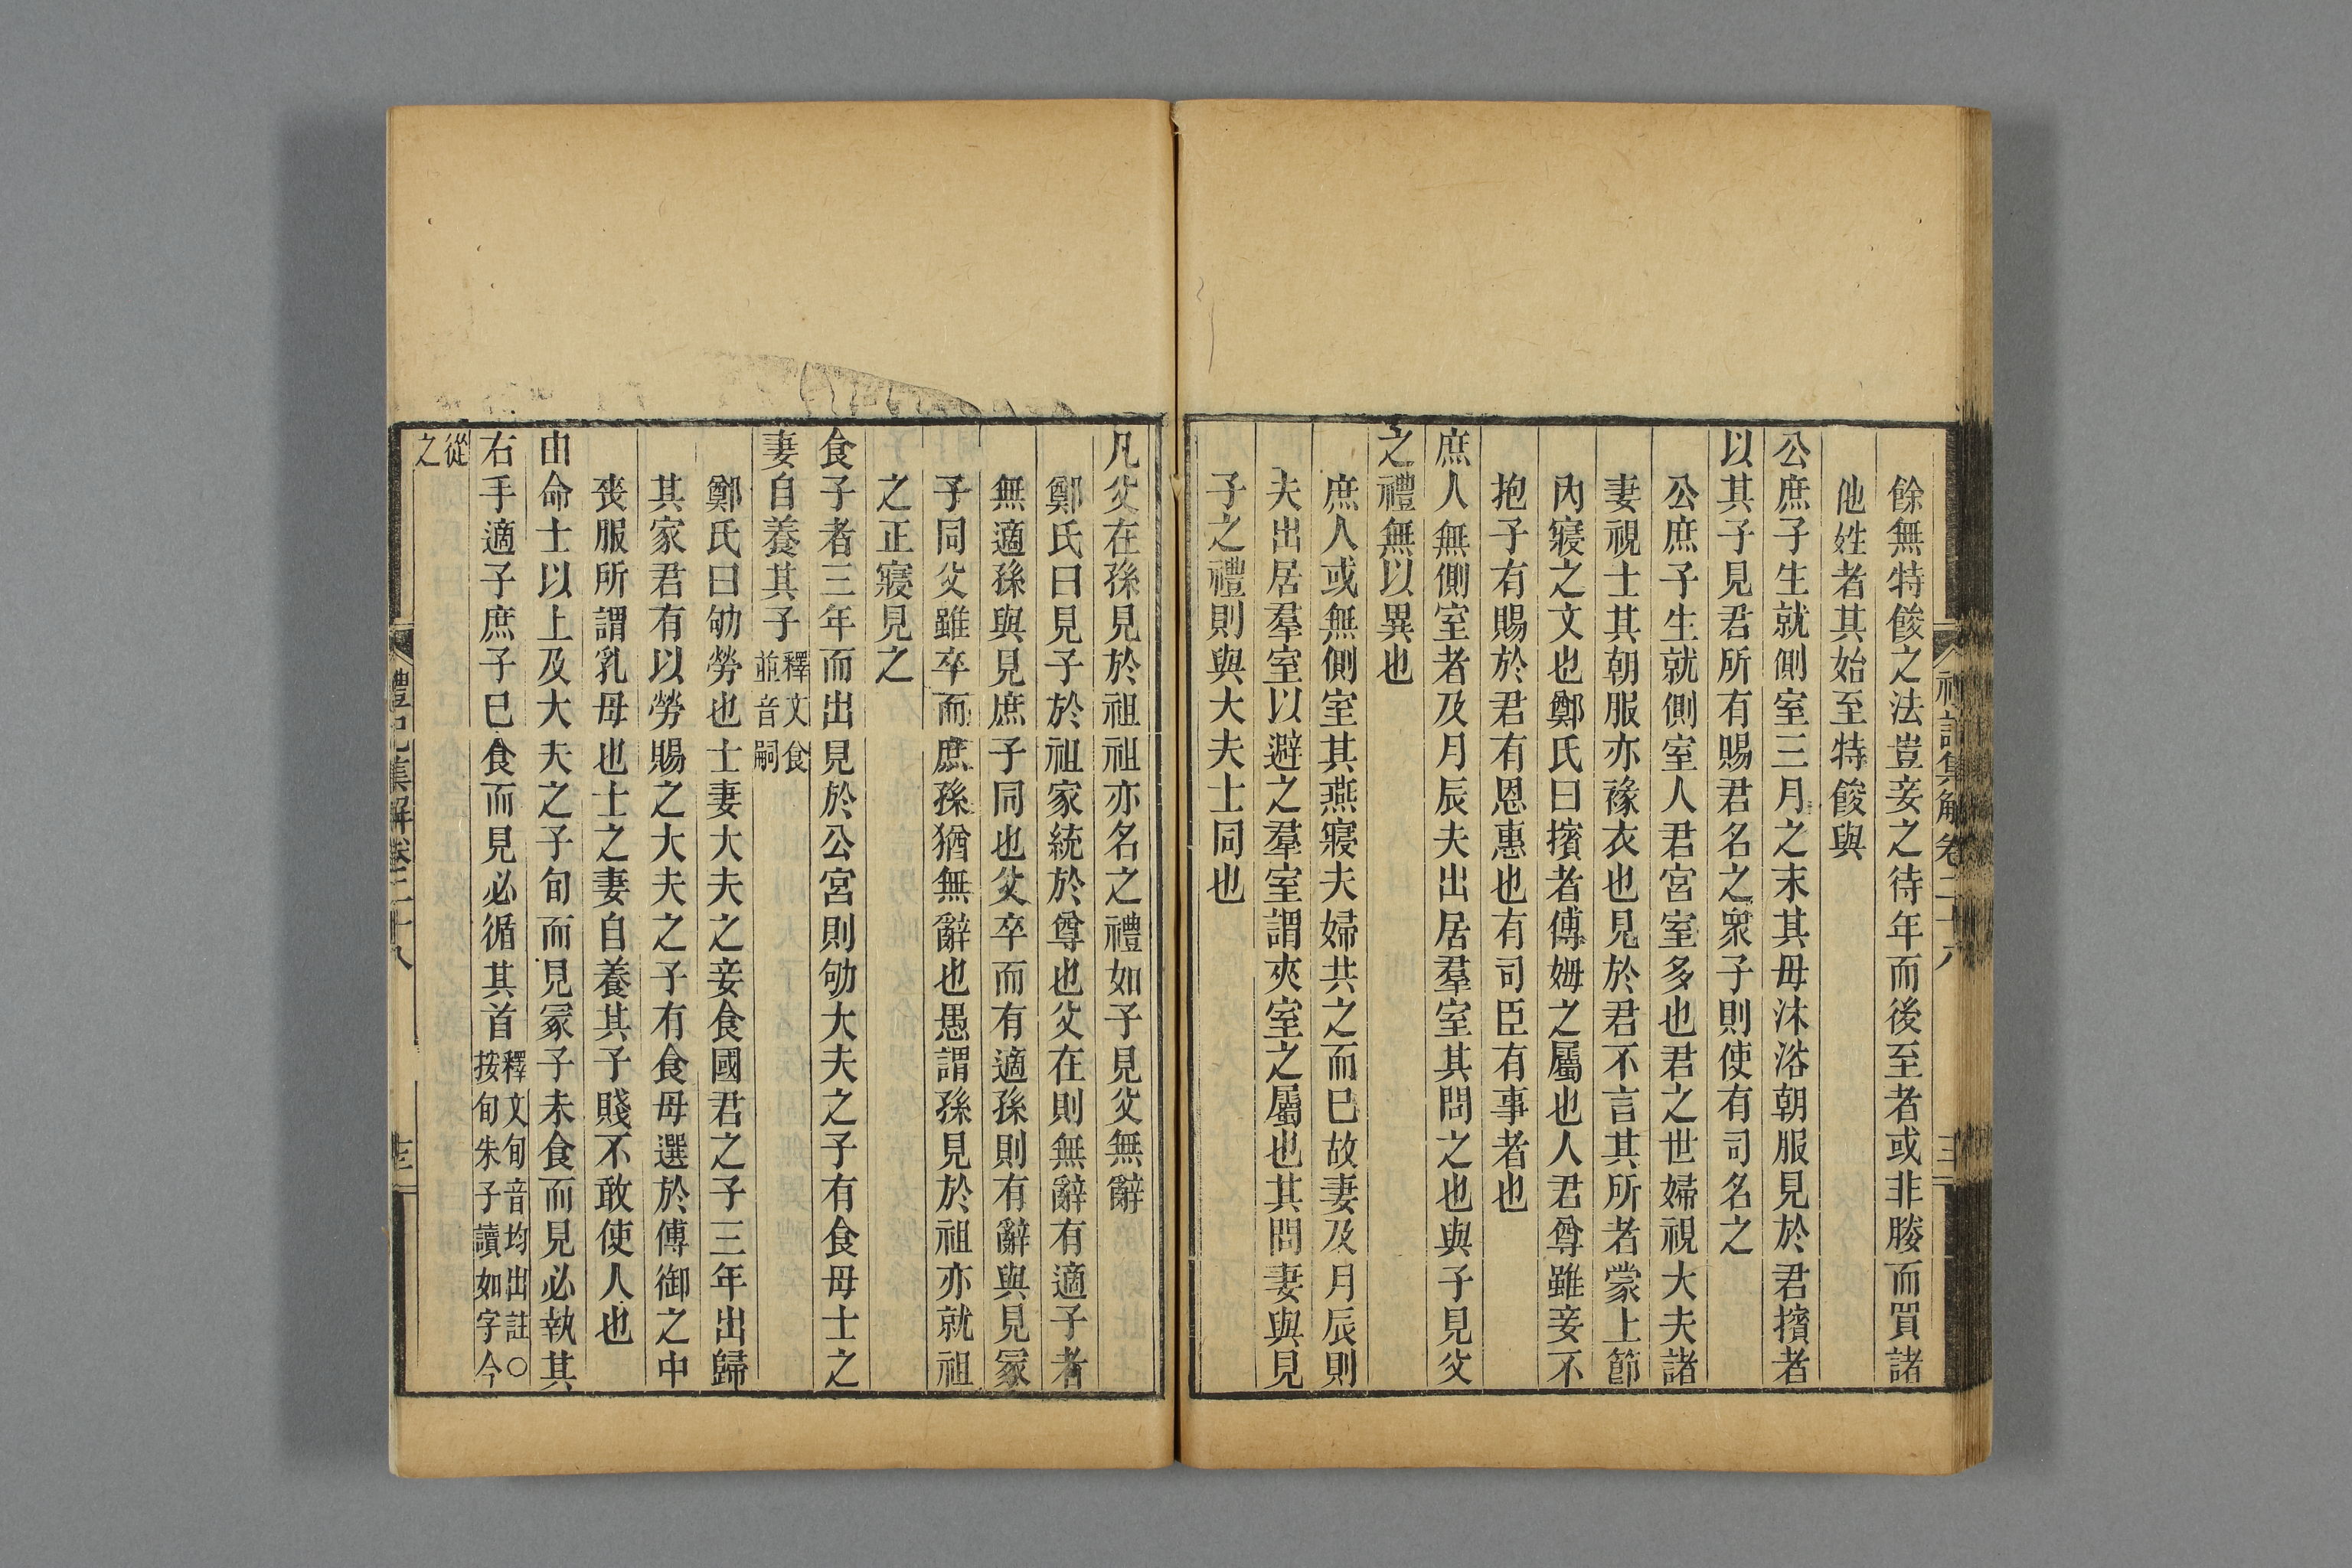 餘無特餕之法豈妾之待年而後至者或非媵而買諸
他姓者其始至特餕與
公庶子生就側室三月之末其母沐浴朝服見於君擯者
以其子見君所有賜君名之衆子則使有司名之
公庶子生就側室人君宮室多也君之世婦視大夫諸
妻視士其朝服亦褖衣也見於君不言其所者蒙上節
內寢之文也鄭氏曰擯者傅姆之屬也人君尊雖妾不
抱子有賜於君有恩惠也有司臣有事者也
庶人無側室者及月辰夫出居羣室其問之也與子見父
之禮無以異也
庶人或無側室其燕寢夫婦共之而已故妻及月辰則
夫出居羣室以避之羣室謂夾室之屬也其問妻與見
子之禮則與大夫士同也
凡父在孫見於祖祖亦名之禮如子見父無辭
鄭氏曰見子於祖家統於尊也父在則無辭有適子者
無適孫與見庶子同也父卒而有適孫則有辭與見冢
子同父雖卒而庶孫猶無辭也愚謂孫見於祖亦就祖
之正寢見之
食子者三年而出見於公宮則劬大夫之子有食母士之
妻自養其子釋文食並音嗣
鄭氏曰劬勞也士妻大夫之妾食國君之子三年出歸
其家君有以勞賜之大夫之子有食母選於傅御之中
喪服所謂乳母也士之妻自養其子賤不敢使人也
由命士以上及大夫之子旬而見冢子未食而見必執其
右手適子庶子已食而見必循其首釋文旬音均出註○按旬朱子讀如字今
從之
禮記集解卷二十八